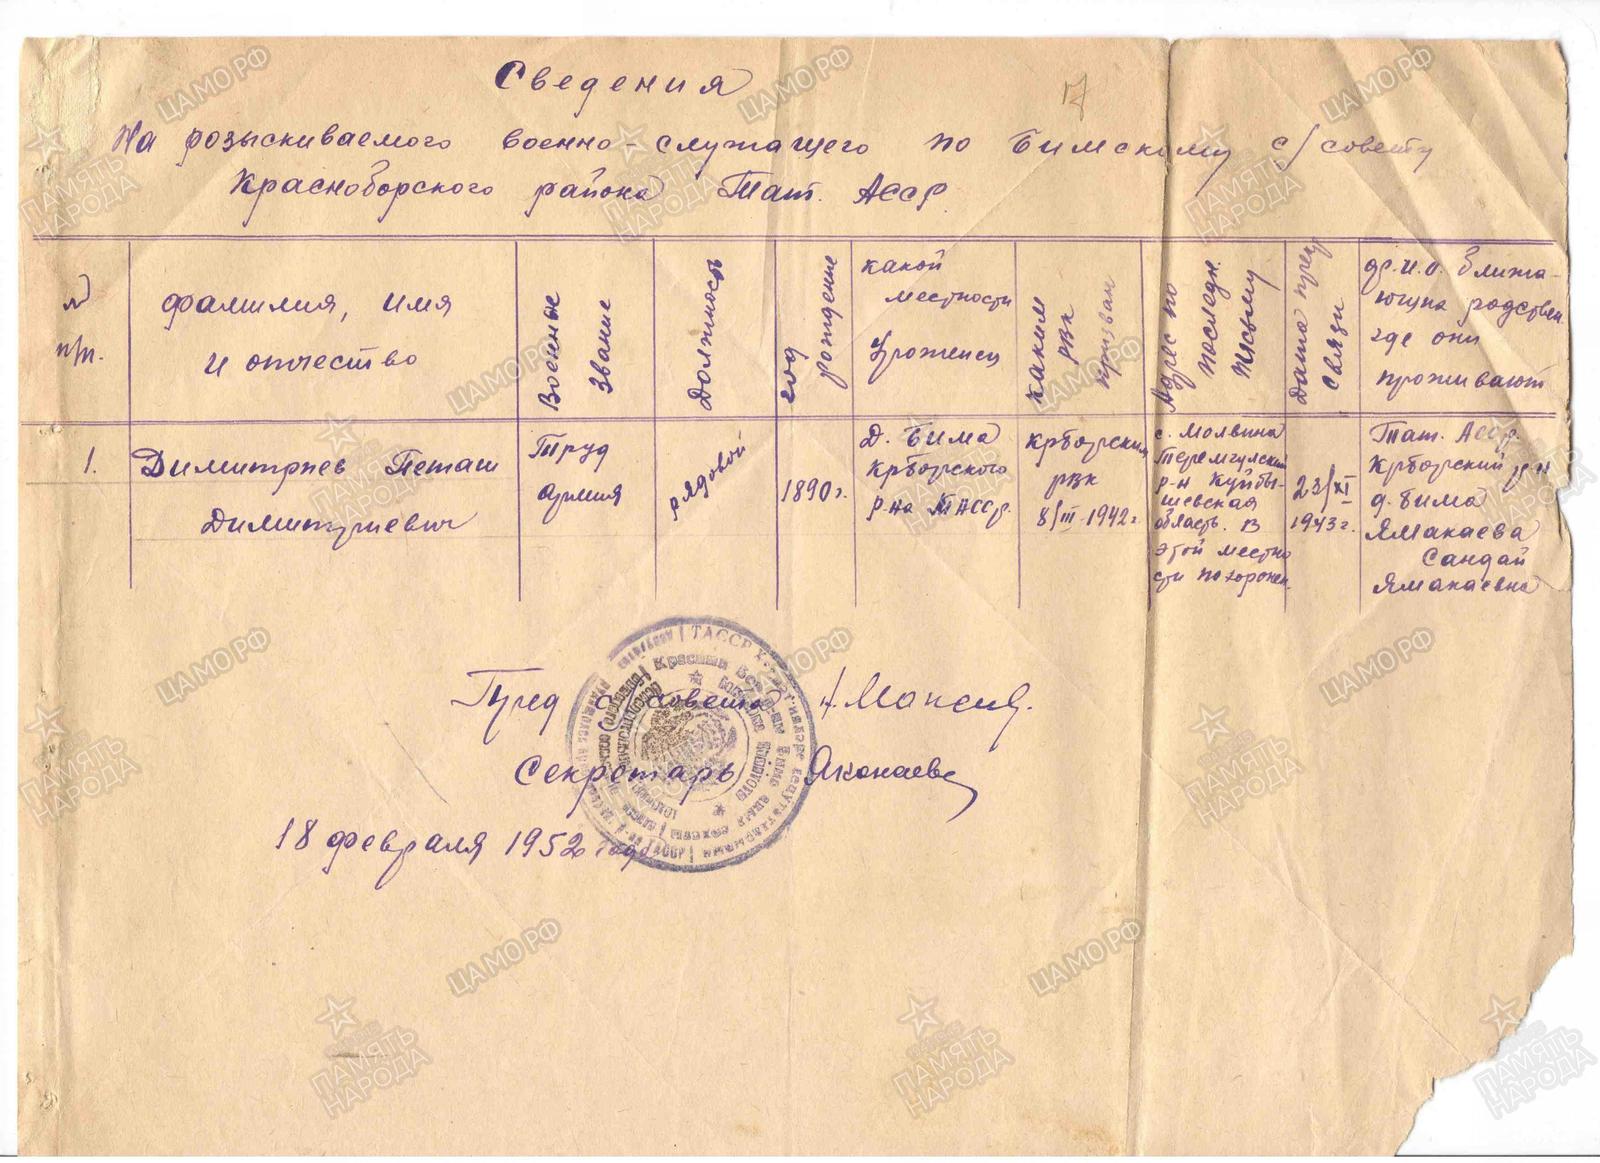 Сведения
17
На розыскиваемого военно-служащего по Бимскому с/совету
Красноборского района Тат. АССР.
№ п/п.
фамилия, имя и отчество
Военное звание
Должность
год рождение
какой местности Уроженец
каким рвк призван
Адрес по последн. письму
Дата прек связи
ф.и.о. ближа-
ющиа родствен.
где они
проживают
1.
Димитриев Петаш
Димитриевич
Труд
армия
рядовой
1890г.
Д. Бима
Крборского
р-на ТАССР.
Крборским
рвк
8/III-1942г.
с. Молвина
Теремгулский
р-н Куйбы-
шевская
область. в
этой местно
сти похоронен.
23/XI
1943г.
Тат. АССР.
Крборский р-н
д. Бима
Ямакаева
Сандай
Ямакаевна
Пред с/совета
Секретарь
18 февраля 1952 года
ТАССР
ЦАМО.РФ
ПАМЯТЬ НАРОДА